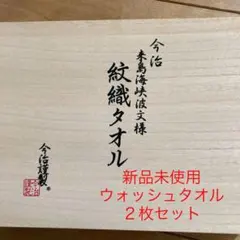 今治
来島海峡波文様
紋織タオル
今治謹製®
新品未使用
ウォッシュタオル
２枚セット